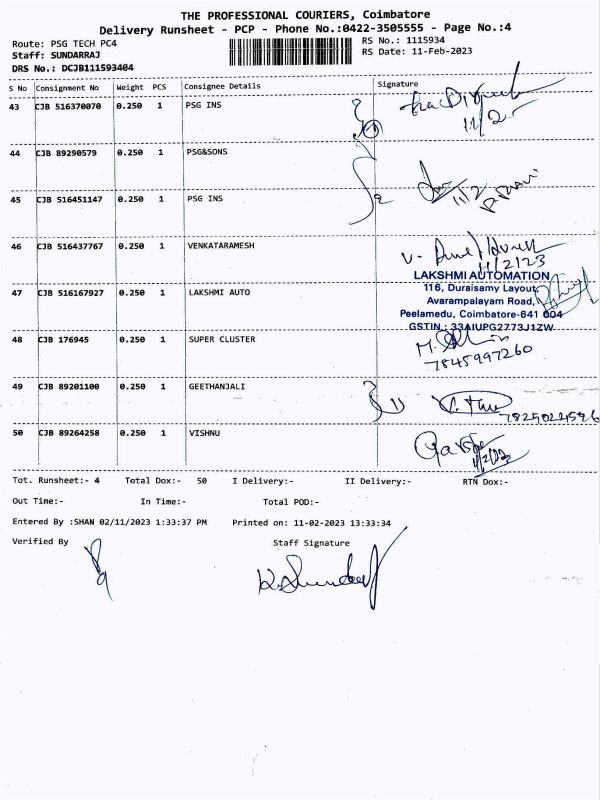 THE PROFESSIONAL COURIERS, Coimbatore
Delivery Runsheet - PCP - Phone No.:0422-3505555 - Page No.:4
Route: PSG TECH PC4
RS No.: 1115934
Staff: SUNDARRAJ
RS Date: 11-Feb-2023
DRS No.: DCJB111593404
S No Consignment No Weight PCS Consignee Details Signature
43 CJB 516370070 0.250 1 PSG INS
11/2
44 CJB 89290579 0.250 1 PSG&SONS
11/2
45 CJB 516451147 0.250 1 PSG INS
46 CJB 516437767 0.250 1 VENKATARAMESH
11/2/23
LAKSHMI AUTOMATION
47 CJB 516167927 0.250 1 LAKSHMI AUTO
116, Duraisamy Layout,
Avarampalayam Road,
Peelamedu, Coimbatore-641 004
GSTIN : 33AIUPG2773J1ZW
48 CJB 176945 0.250 1 SUPER CLUSTER
7845997260
49 CJB 89201100 0.250 1 GEETHANJALI
50 CJB 89264258 0.250 1 VISHNU
11/2/23
Tot. Runsheet:- 4 Total Dox:- 50 I Delivery:- II Delivery:- RTN Dox:-
Out Time:- In Time:- Total POD:-
Entered By :SHAN 02/11/2023 1:33:37 PM Printed on: 11-02-2023 13:33:34
Verified By Staff Signature